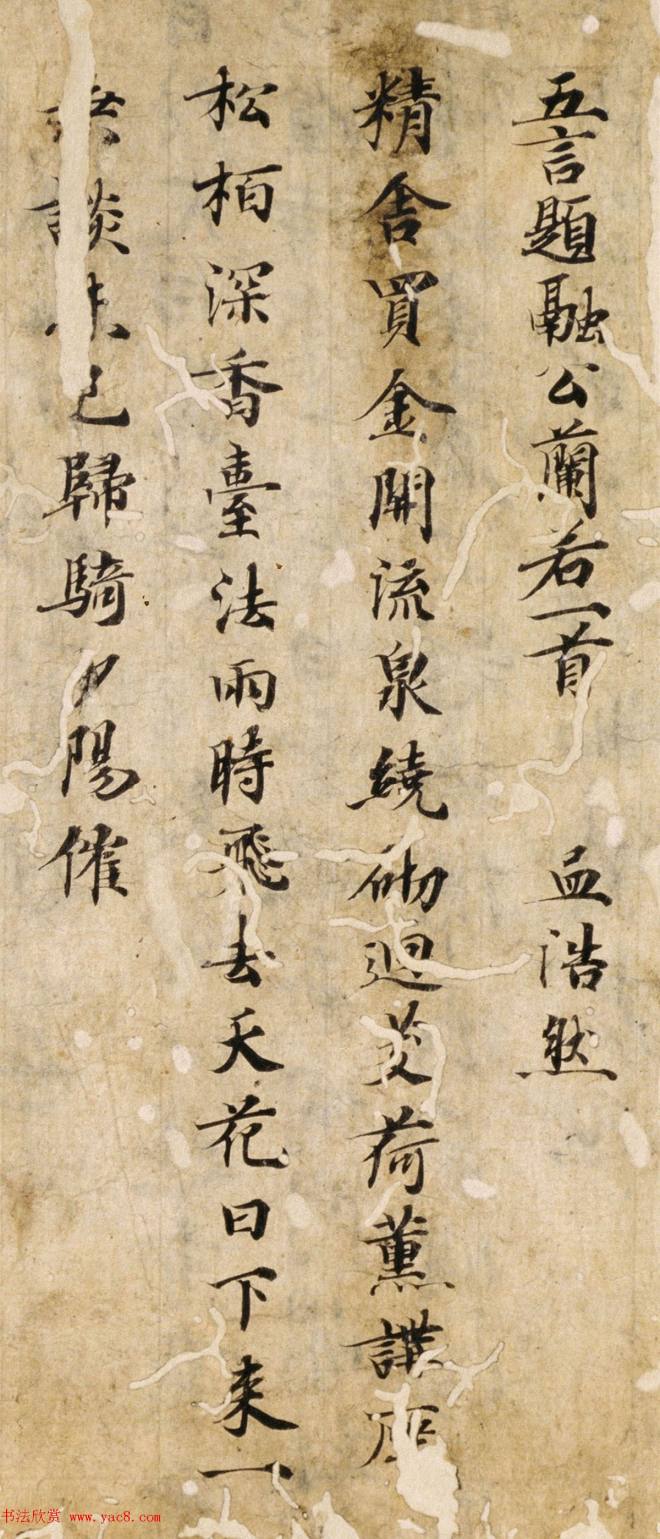 五言題融公蘭若一首 孟浩然
精舍買金開流泉繞砌迴芰荷薰講座
松栢深香臺法雨時飛去天花日下来一
談未已歸騎夕陽催
书法欣赏 www.yac8.com